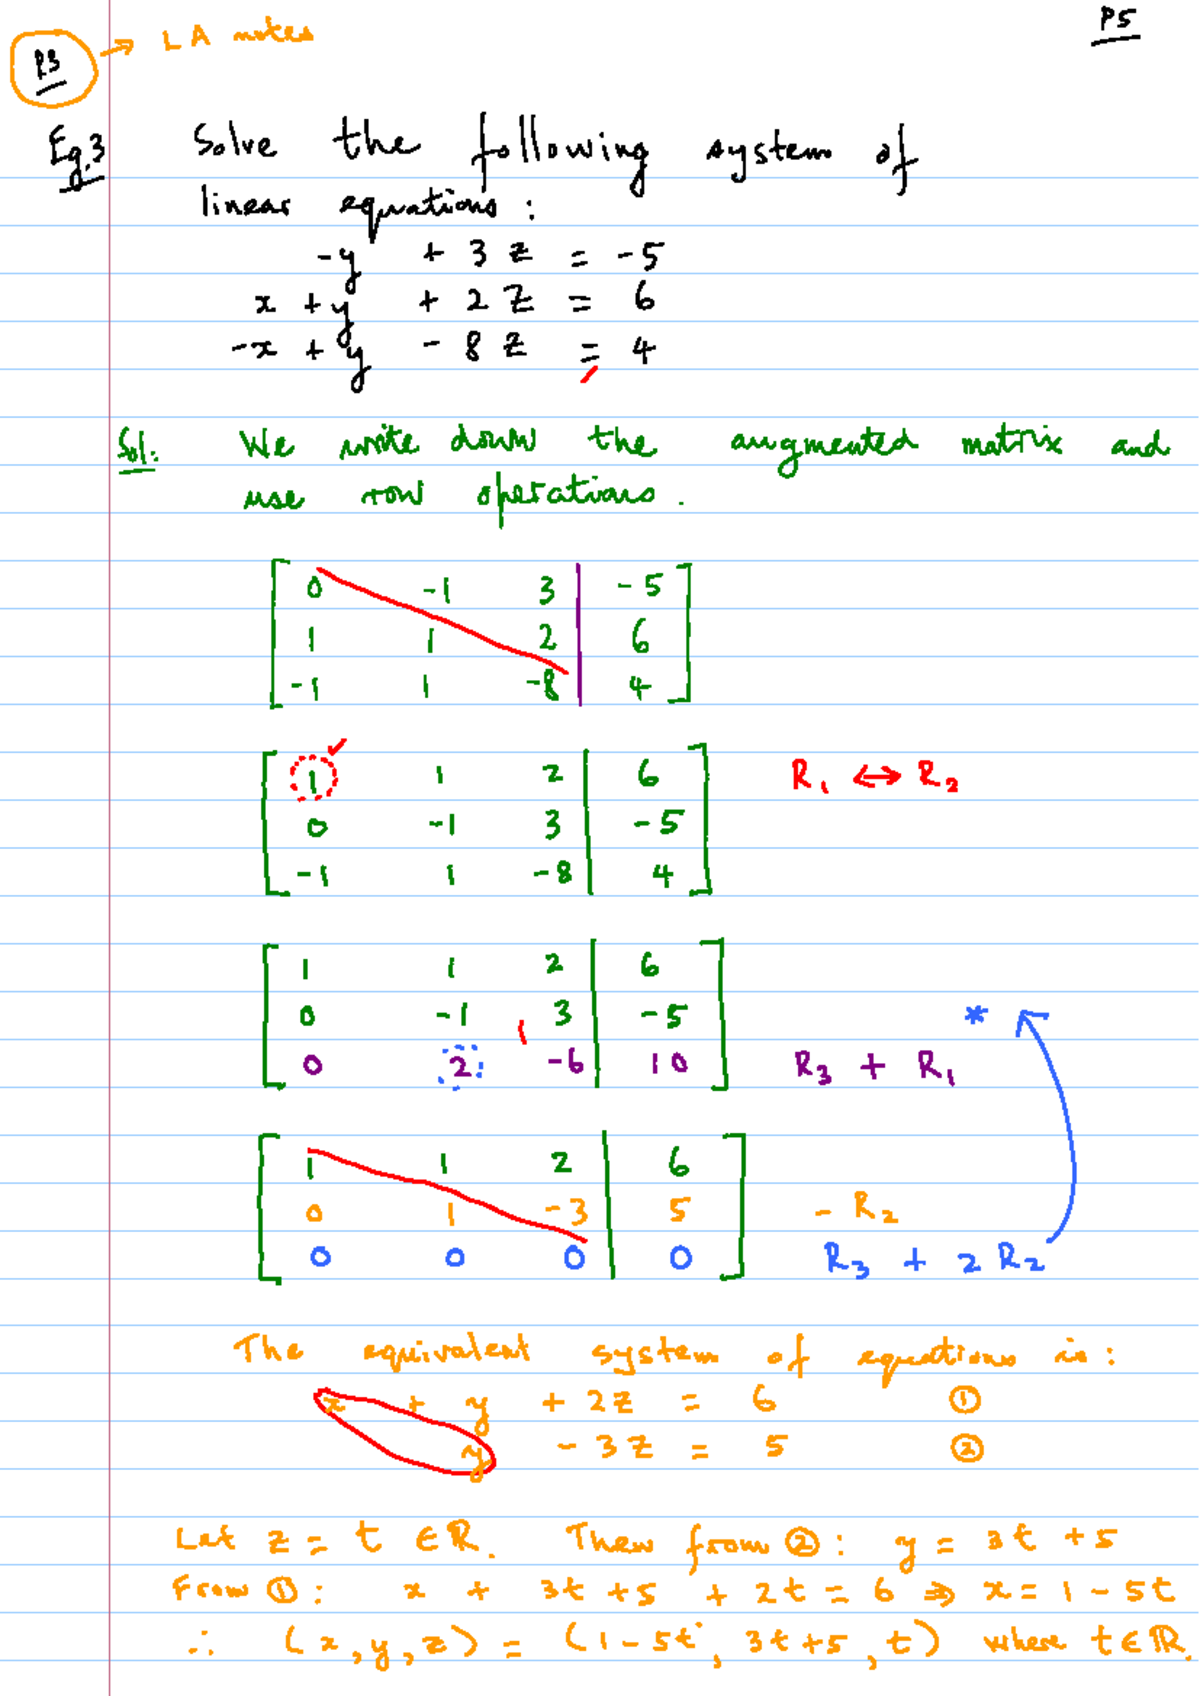 P3 → LA notes P5
Eg.3 Solve the following system of
linear equations :
-y + 3z = -5
x + y + 2z = 6
-x + y - 8z = 4
Sol: We write down the augmented matrix and
use row operations.
[ 0 -1 3 | -5 ]
[ 1 1 2 | 6 ]
[ -1 1 -8 | 4 ]
[ 1 1 2 | 6 ] R₁ ↔ R₂
[ 0 -1 3 | -5 ]
[ -1 1 -8 | 4 ]
[ 1 1 2 | 6 ]
[ 0 -1 3 | -5 ] *
[ 0 2 -6 | 10 ] R₃ + R₁
[ 1 1 2 | 6 ]
[ 0 1 -3 | 5 ] - R₂
[ 0 0 0 | 0 ] R₃ + 2R₂
The equivalent system of equations is :
x + y + 2z = 6 ①
y - 3z = 5 ②
Let z = t ∈ ℝ. Then from ② : y = 3t + 5
From ① : x + 3t + 5 + 2t = 6 ⇒ x = 1 - 5t
∴ (x, y, z) = (1 - 5t, 3t + 5, t) where t ∈ ℝ.